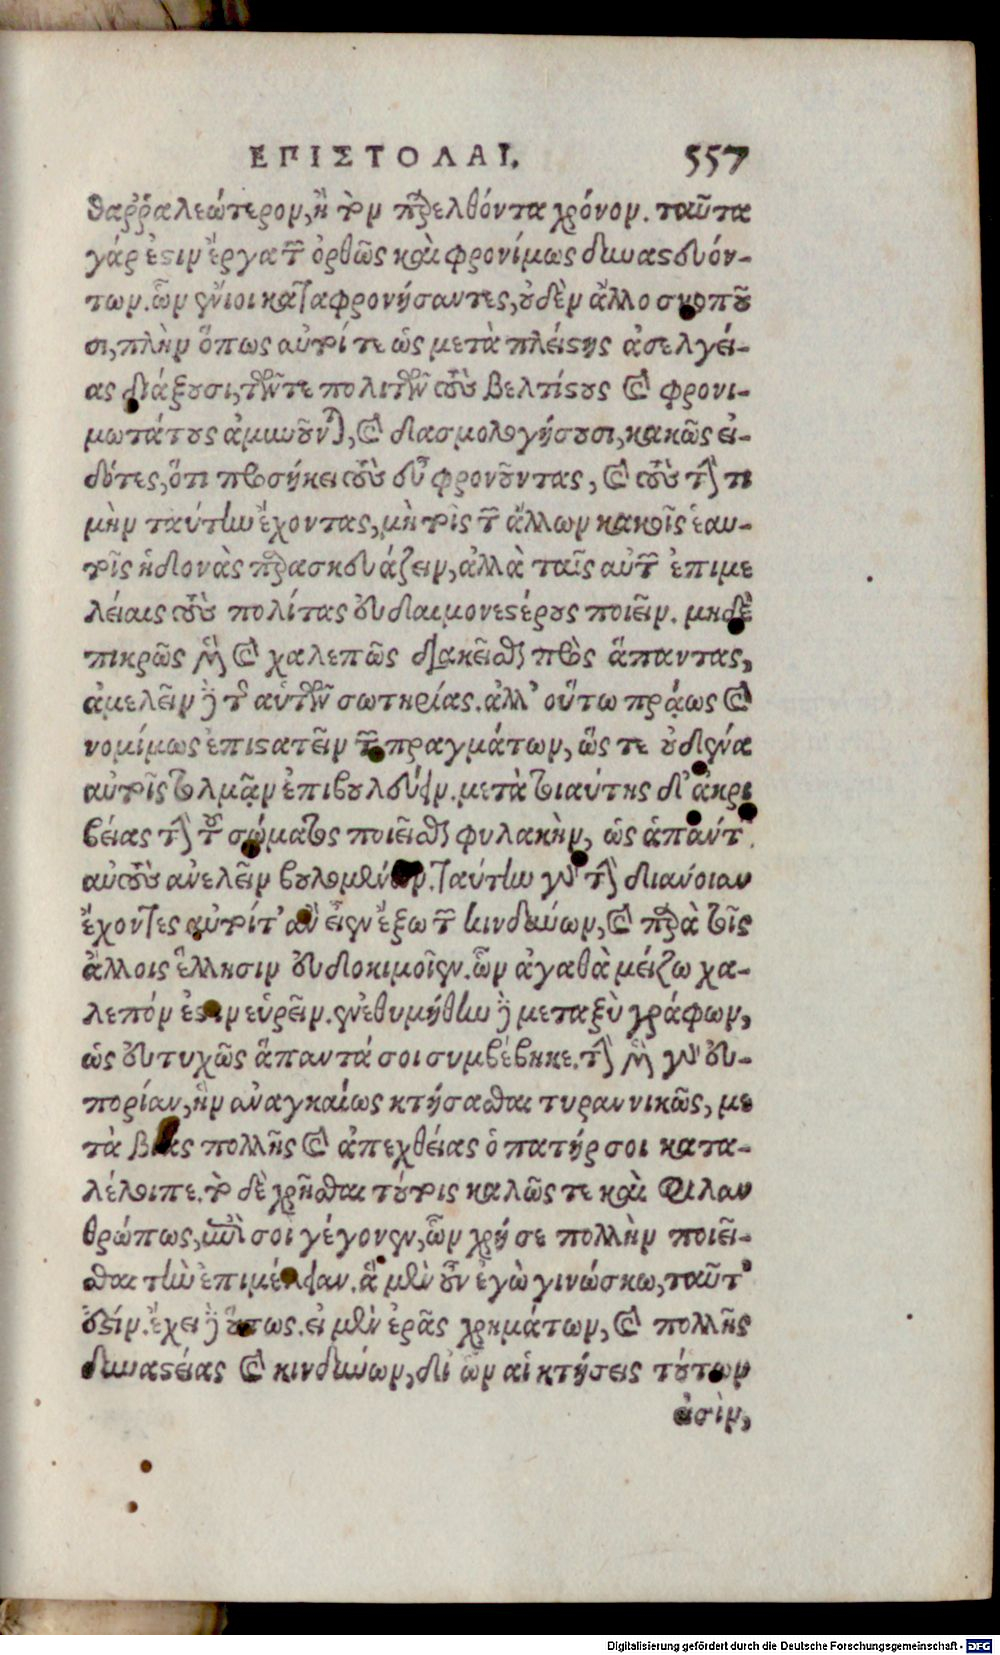 ΕΠΙΣΤΟΛΑΙ. 557
θαῤῥαλεώτερον, ἢ τὸν παρελθόντα χρόνον. ταῦτα
γάρ ἐστιν ἔργα τῶν ὀρθῶς καὶ φρονίμως δυναστευόν-
των. ὧν ἔνιοι καταφρονήσαντες, οὐδὲν ἄλλο σκοποῦ
σι, πλὴν ὅπως αὐτοί τε ὡς μετὰ πλείστης ἀσελγεί-
ας διάξουσι, τῶν τε πολιτῶν τοὺς βελτίστους καὶ φρονι-
μωτάτους ἀμυνοῦνται, καὶ δασμολογήσουσι, κακῶς εἰ-
δότες, ὅτι προσήκει τοὺς εὖ φρονοῦντας, καὶ τοὺς τὴν τι
μὴν ταύτην ἔχοντας, μὴ τοῖς τῶν ἄλλων κακοῖς ἑαυ-
τοῖς ἡδονὰς παρασκευάζειν, ἀλλὰ ταῖς αὐτῶν ἐπιμε
λείαις τοὺς πολίτας εὐδαιμονεστέρους ποιεῖν. μηδὲ
πικρῶς μὲν καὶ χαλεπῶς διακεῖσθαι πρὸς ἅπαντας,
ἀμελεῖν δὲ τῆς αὑτῶν σωτηρίας. ἀλλ' οὕτω πράως καὶ
νομίμως ἐπιστατεῖν τῶν πραγμάτων, ὥς τε μηδένα
αὐτοῖς τολμᾷν ἐπιβουλεύειν. μετὰ τοιαύτης δ' ἀκρι
βείας τὴν τοῦ σώματος ποιεῖσθαι φυλακὴν, ὡς ἁπάντων
αὐτοὺς ἀνελεῖν βουλομένων. ταύτην γὰρ τὴν διάνοιαν
ἔχοντες αὐτοί τ' ἂν εἶεν ἔξω τῶν κινδύνων, καὶ παρὰ τοῖς
ἄλλοις ἕλλησιν εὐδοκιμοῖεν. ὧν ἀγαθὰ μείζω χα-
λεπόν ἐστιν εὑρεῖν. ἐνεθυμήθην δὲ μεταξὺ γράφων,
ὡς εὐτυχῶς ἅπαντά σοι συμβέβηκε. τὴν μὲν γὰρ εὐ-
πορίαν, ἣν ἀναγκαίως κτήσασθαι τυραννικῶς, με
τὰ βίας πολλῆς καὶ ἀπεχθείας ὁ πατήρ σοι κατα-
λέλοιπε. τὸ δὲ χρῆσθαι τούτοις καλῶς τε καὶ φιλαν
θρώπως, ἐπὶ σοὶ γέγονεν, ὧν χρή σε πολλὴν ποιεῖ-
σθαι τὴν ἐπιμέλειαν. ἃ μὲν οὖν ἐγὼ γινώσκω, ταῦτ'
ἐστίν. ἔχει δὲ οὕτως. εἰ μὲν ἐρᾷς χρημάτων, καὶ πολλῆς
δυναστείας καὶ κινδύνων, δι' ὧν αἱ κτήσεις τούτων
εἰσὶν,
Digitalisierung gefördert durch die Deutsche Forschungsgemeinschaft - DFG